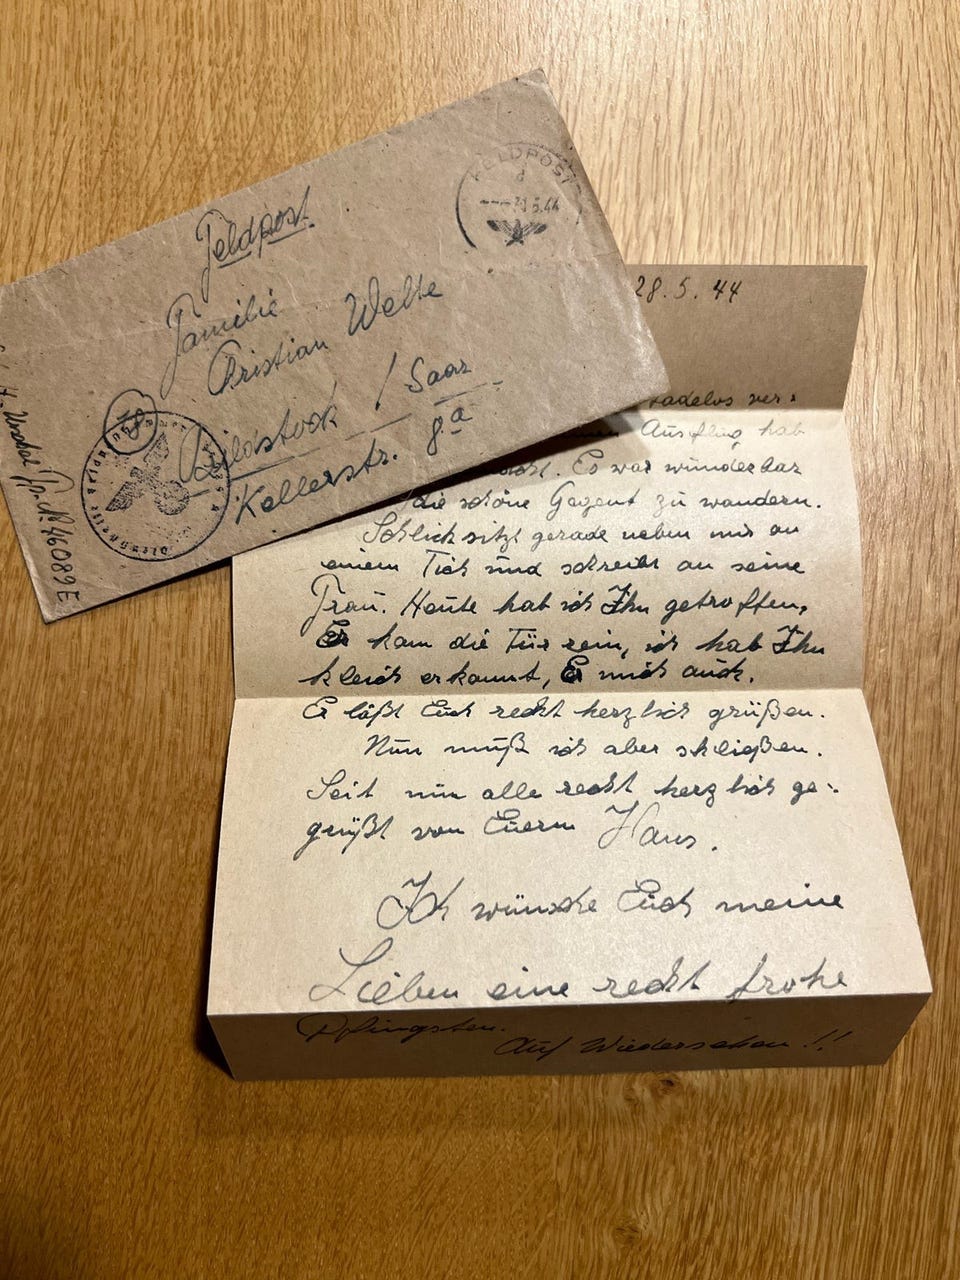 FELDPOST
d
5.44
Feldpost
Familie
Christian Welte
Bildstock / Saar
Kellerstr. 8a
46089 E
28.5.44
tadelos ver-
Ausflug hab
Es war wunderbar
die schöne Gegent zu wandern.
Schlich sitzt gerade neben mir an
einem Tich und schreibt an seine
Frau. Heute hab ich Ihn getroffen,
Er kam die Tür rein, ich hab Ihn
kleich erkannt, Er mich auch.
Er läßt Euch recht herzlich grüßen.
Nun muß ich aber schließen.
Seit nun alle recht herzlich ge-
grüßt von Euerm Hans.
Ich wünsche Euch meine
Lieben eine recht frohe
Pfingsten.
Auf Wiedersehen !!